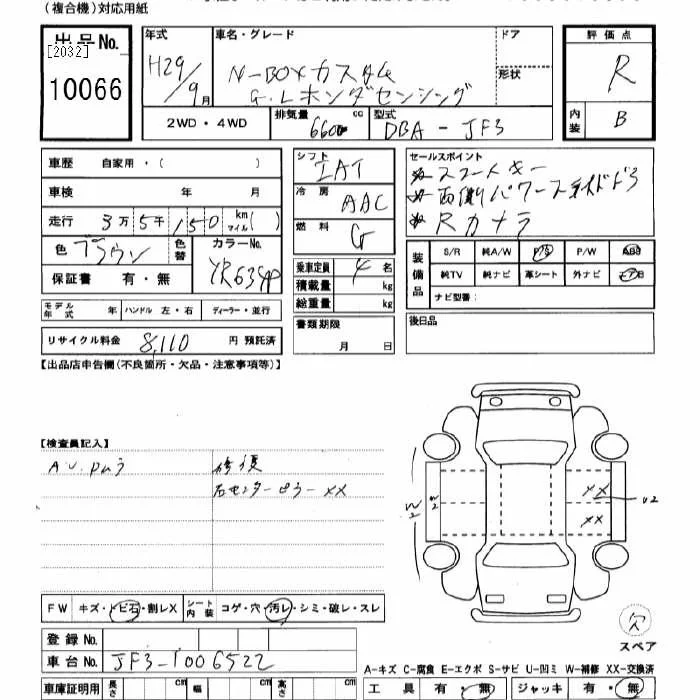 (複合機)対応用紙
出品No.
[2032]
10066
年式
H29/9月
車名・グレード
N-BOXカスタム
G.Lホンダセンシング
ドア
形状
評価点
R
内装
B
2WD・4WD
排気量
660 cc
型式
DBA-JF3
車歴 自家用・( )
車検 年 月
走行 3万5千150km マイル( )
色 ブラウン
色替
カラーNo.
保証書 有・無
モデル年式 年 ハンドル 左・右 ディーラー・並行
リサイクル料金 8,110 円 預託済
シフト
IAT
冷房
AAC
燃料
G
乗車定員 4 名
積載量 kg
総重量 kg
書類期限
月 日
セールスポイント
スマートキー
両側パワースライドドア
Rカメラ
装備品
S/R 純A/W P/S P/W ABS
純TV 純ナビ 革シート 外ナビ
ナビ型番:
後日品
【出品店申告欄(不良箇所・欠品・注意事項等)】
【検査員記入】
修復
右センターピラーXX
W2
W2
XX
XX
U2
FW キズ・トビ石・割レX
シート内装 コゲ・穴・汚レ・シミ・破レ・スレ
登録No.
車台No. JF3-1006522
車庫証明用 長さ cm 幅 cm 高さ cm
欠
スペア
A-キズ C-腐食 E-エクボ S-サビ U-凹ミ W-補修 XX-交換済
工具 有・無 ジャッキ 有・無